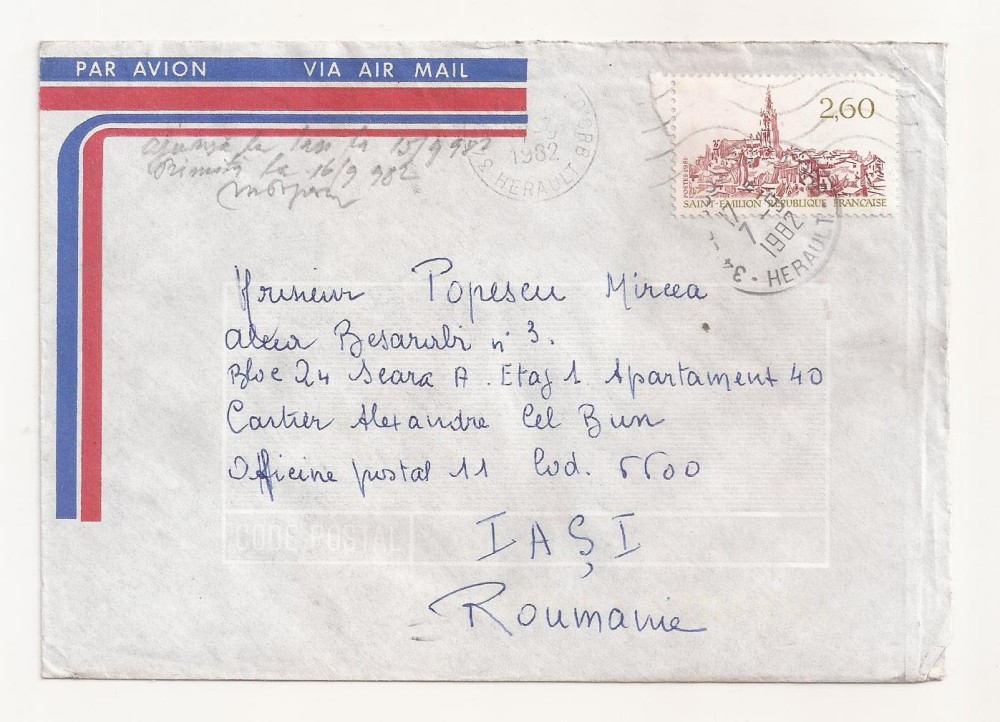 PAR AVION VIA AIR MAIL
la 15/9 982
la 16/9 982
1982
HERAULT
2,60
SAINT-EMILION REPUBLIQUE FRANCAISE
17
7
1982
34 - HERAULT
Monsieur Popescu Mircea
aleea Besarabi n° 3.
Bloc 24 Scara A. Etaj 1 Apartament 40
Cartier Alexandre Cel Bun
Officine postal 11 Cod. 6600
CODE POSTAL
IAŞI
Roumanie